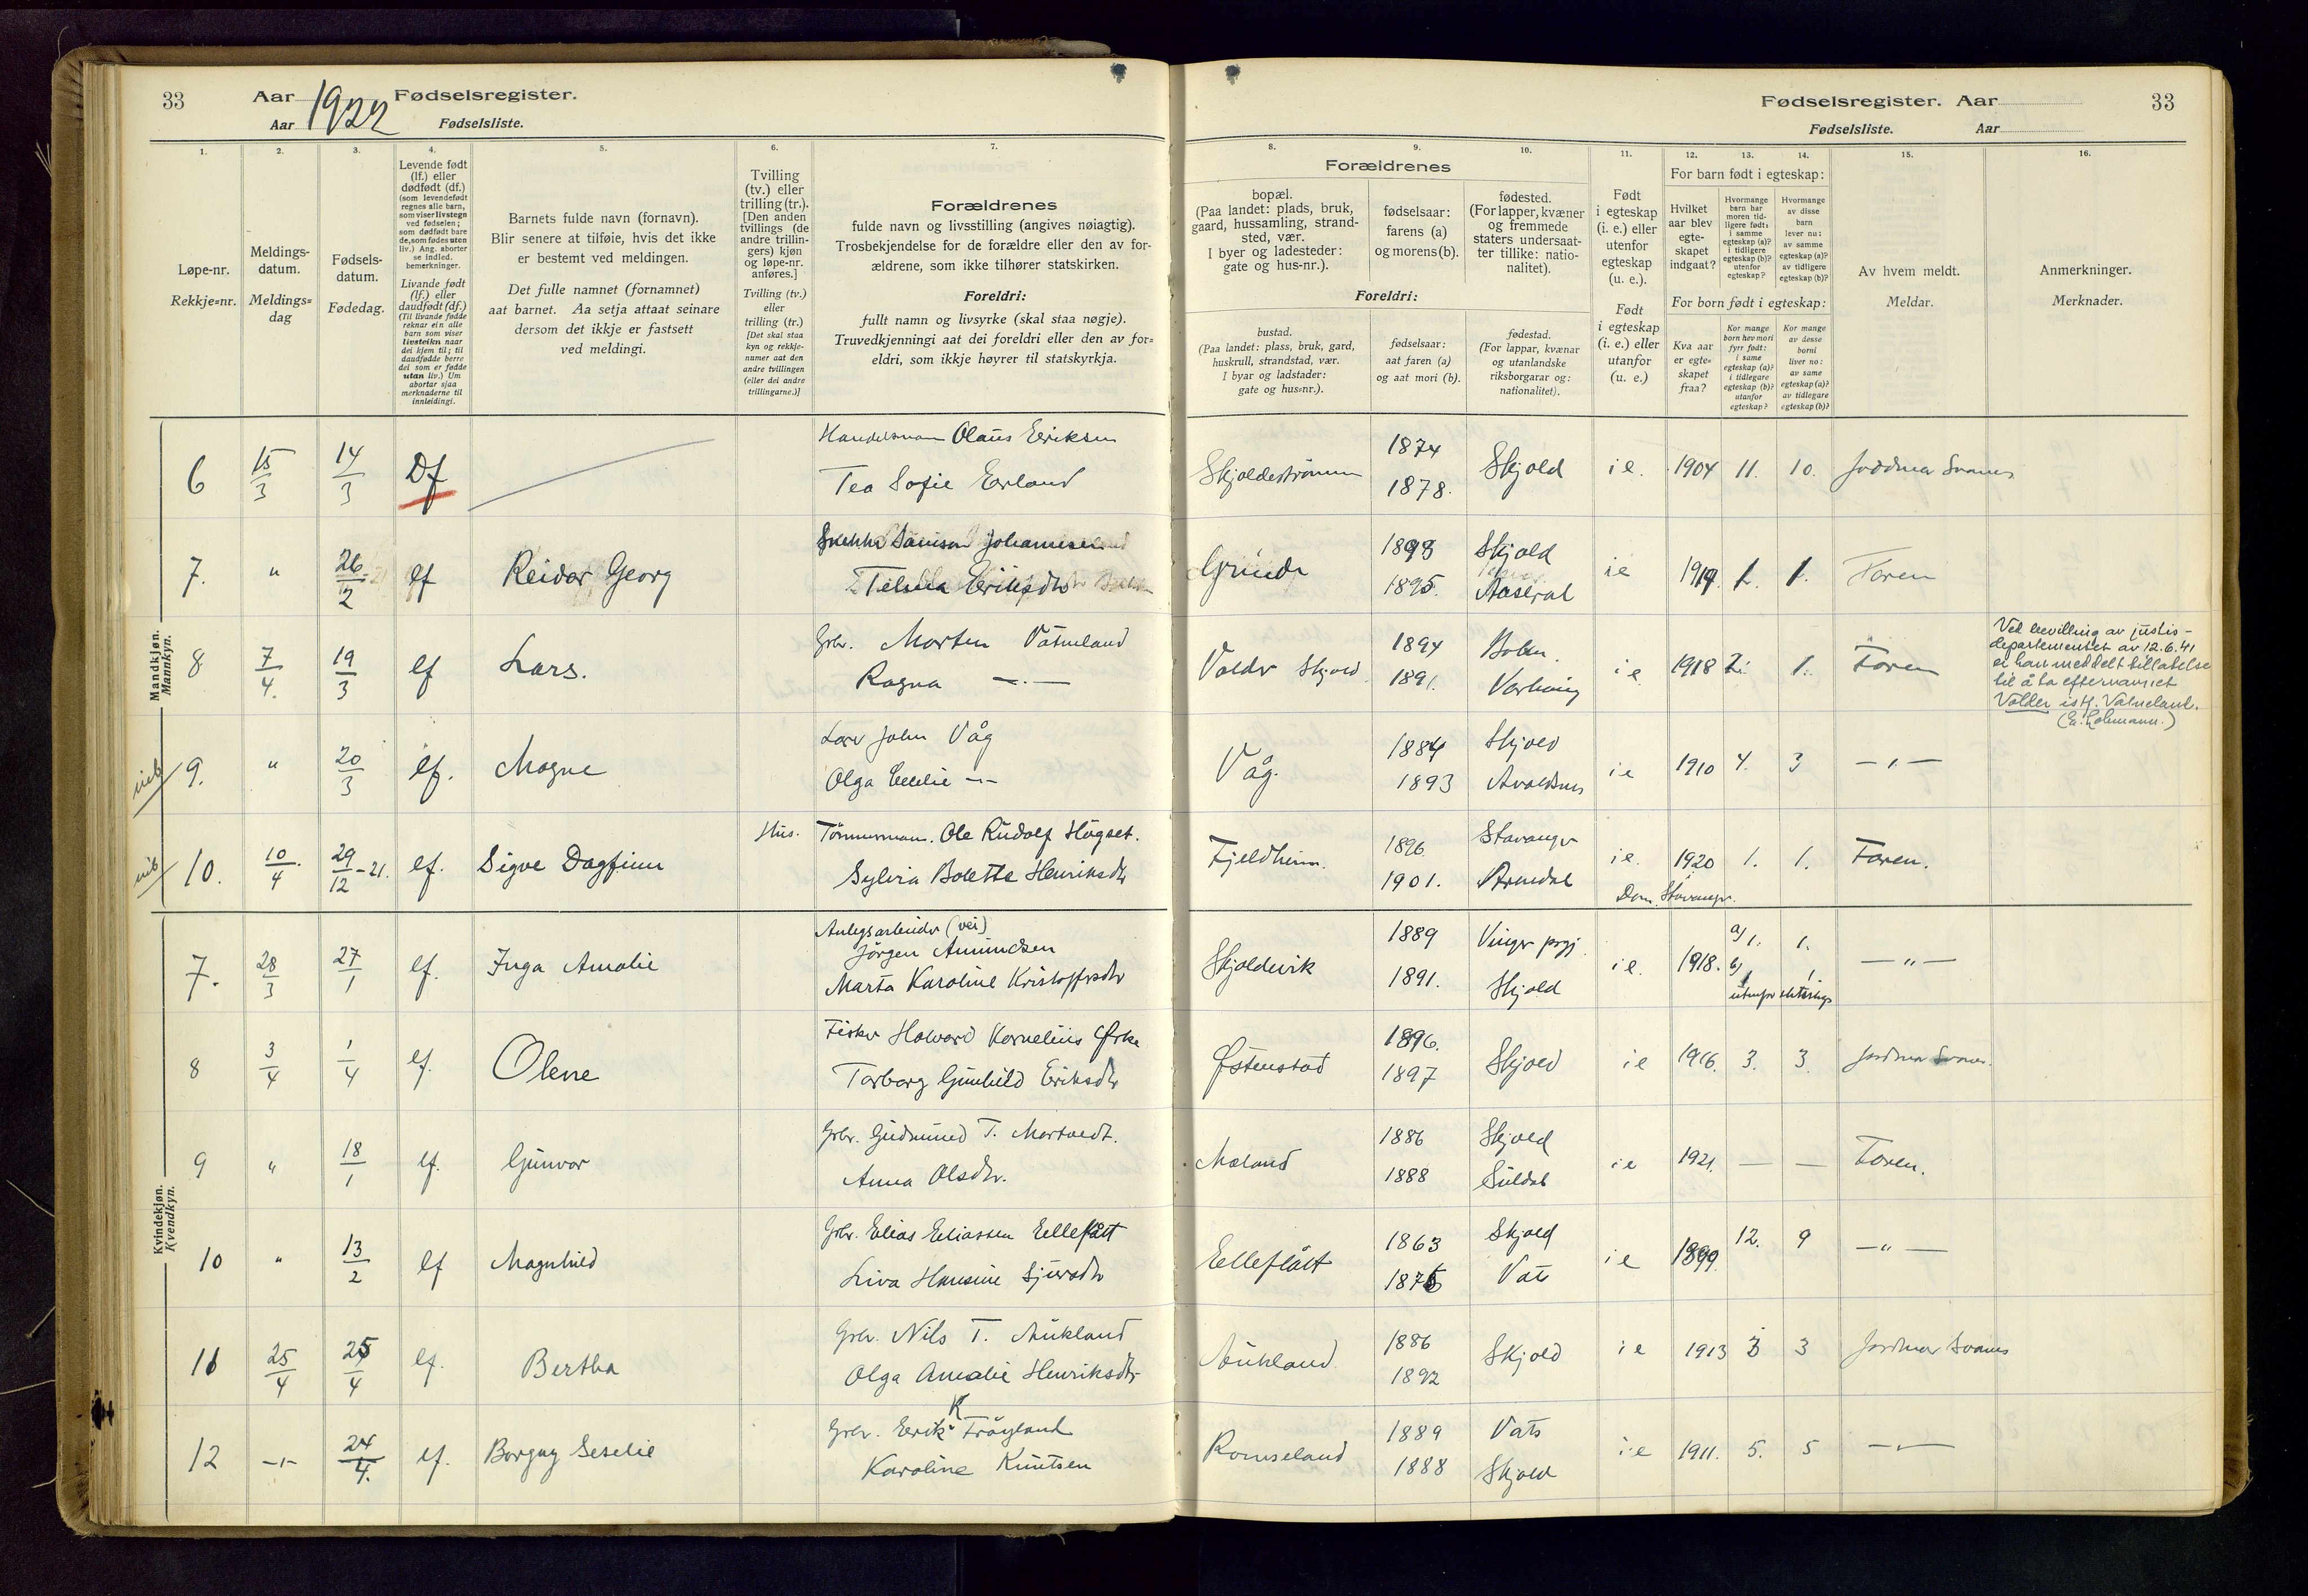 33 Aar 1922 Fødselsregister.
Aar Fødselsliste.
Fødselsregister. Aar 33
Fødselsliste. Aar
1. 2. 3. 4. 5. 6. 7. 8. 9. 10. 11. 12. 13. 14. 15. 16.
Løpe-nr.
Rekkje=nr.
Meldings-
datum.
Meldings=
dag
Fødsels-
datum.
Fødedag.
Levende født
(lf.) eller
dødfødt (df.)
(som levendefødt
regnes alle barn,
som viser livstegn
ved fødselen;
som dødfødt bare
de, som fødes uten
liv.) Ang. aborter
se indled.
bemerkninger.
Livande født
(lf.) eller
daudfødt (df.)
(Til livande fødde
reknar ein alle
barn som viser
livsteikn naar
dei kjem til; til
daudfødde berre
dei som er fødde
utan liv.) Um
abortar sjaa
merknaderne til
innleidingi.
Barnets fulde navn (fornavn).
Blir senere at tilføie, hvis det ikke
er bestemt ved meldingen.
Det fulle namnet (fornamnet)
aat barnet. Aa setja attaat seinare
dersom det ikkje er fastsett
ved meldingi.
Tvilling
(tv.) eller
trilling (tr.).
[Den anden
tvillings (de
andre trillin-
gers) kjøn
og løpe-nr.
anføres.]
Tvilling (tv.)
eller
trilling (tr.)
[Det skal staa
kyn og rekkje-
numer aat den
andre tvillingen
(eller dei andre
trillingarne.)]
Forældrenes
fulde navn og livsstilling (angives nøiagtig).
Trosbekjendelse for de forældre eller den av for-
ældrene, som ikke tilhører statskirken.
Foreldri:
fullt namn og livsyrke (skal staa nøgje).
Truvedkjenningi aat dei foreldri eller den av for=
eldri, som ikkje høyrer til statskyrkja.
Forældrenes
bopæl.
(Paa landet: plads, bruk,
gaard, hussamling, strand-
sted, vær.
I byer og ladesteder:
gate og hus-nr.).
fødselsaar:
farens (a)
og morens (b).
fødested.
(For lapper, kvæner
og fremmede
staters undersaat-
ter tillike: natio-
nalitet).
Foreldri:
bustad.
(Paa landet: plass, bruk, gard,
huskrull, strandstad, vær.
I byar og ladstader:
gate og hus=nr.).
fødselsaar:
aat faren (a)
og aat mori (b).
fødestad.
(For lappar, kvænar
og utanlandske
riksborgarar og:
nationalitet).
Født
i egteskap
(i. e.) eller
utenfor
egteskap
(u. e.).
Født
i egteskap
(i. e.) eller
utanfor
(u. e.)
For barn født i egteskap:
Hvilket
aar blev
egte-
skapet
indgaat?
Hvormange
barn har
moren tid-
ligere født:
i samme
egteskap (a)?
i tidligere
egteskap (b)?
utenfor
egteskap?
Hvormange
av disse
barn
lever nu:
av samme
egteskap (a)?
av tidligere
egteskap (b)?
For born født i egteskap:
Kva aar
er egte=
skapet
fraa?
Kor mange
born hev mori
fyrr født:
i same
egteskap (a)?
i tidlegare
egteskap (b)?
utanfor
egteskap?
Kor mange
av desse
borni
liver no:
av same
egteskap (a)?
av tidlegare
egteskap (b)?
Av hvem meldt.
Meldar.
Anmerkninger.
Merknader.
Mandkjøn.
Mannkyn.
6 15/3 14/3 Df Handelsmann Olaus Eriksen
Tea Sofie Erland
Skjoldestrømm 1874 1878. Skjold i e. 1904 11. 10. Jordmor Svanes
7. " 26/12-21 lf Reidar Georg Johannesen
Telma Eriksdtr
Grinde 1898 1895. Skjold Aaseral i e 1919. 1. 1. Faren
8 7/4. 19/3 lf Lars. Grbr. Morten Vatneland
Ragna —"—
Valder Skjold 1894 1891. i e 1918 2. 1. Faren
Ved bevilling av justis-
departementet av 12.6.41
er han meddelt tillatelse
til å ta efternavnet
Valder istf. Vatneland.
9. " 20/3 lf. Magne John Våg
Olga Cecilie —"—
Våg. 1884 1893 Skjold Avaldsnes i e 1910 4. 3 —"—
10. 10/4 29/12-21. lf. Sigve Dagfinn Hus. Tömmermann. Ole Rudolf Högset.
Sylvia Bolette Henriksdtr
Fjeldheim. 1896 1901. Stavanger Arendal i e. 1920 1. 1. Faren.
Dom. Stavanger.
Kvindekjøn.
Kvendkyn.
7. 28/3 27/1 lf. Inga Amalie Anlegsarbeider (vei)
Jørgen Amundsen
Marta Karoline Kristoffersdtr
Skjoldevik 1889 1891. Vinger prgj. Skjold i e. 1918. a) 1. 1. b) 1 1. —"—
8 3/4 1/4 lf. Olene Fisker Halvard Kornelius Ørke
Torborg Gunhild Eriksdtr
Østenstad 1896. 1897 Skjold i e 1916. 3. 3. Jordmor Svanes.
9 " 18/1 lf. Gunvor Grbr. Gudmund T. Mortvedt.
Anna Olsdtr.
Moland 1886 1888 Skjold Suldal i e 1921. — — Faren.
10 " 13/2 lf Magnhild Grbr. Elias Eliassen Elleflått
Liva Hansine Sjursdtr
Elleflått 1863 1875 Skjold Vats i e 1899 12. 9 —"—
11 25/4 25/4 lf. Bertha Grbr. Nils T. Aukland
Olga Amalie Henriksdtr
Aukland. 1886 1892 Skjold i e 1913 3 3 Jordmor Svanes
12 —"— 24/4. lf. Borgny Seselie Grbr. Erik K Frøyland
Karoline Knutsen
Romseland 1889 1888 Vats Skjold i e 1911. 5. 5 —"—